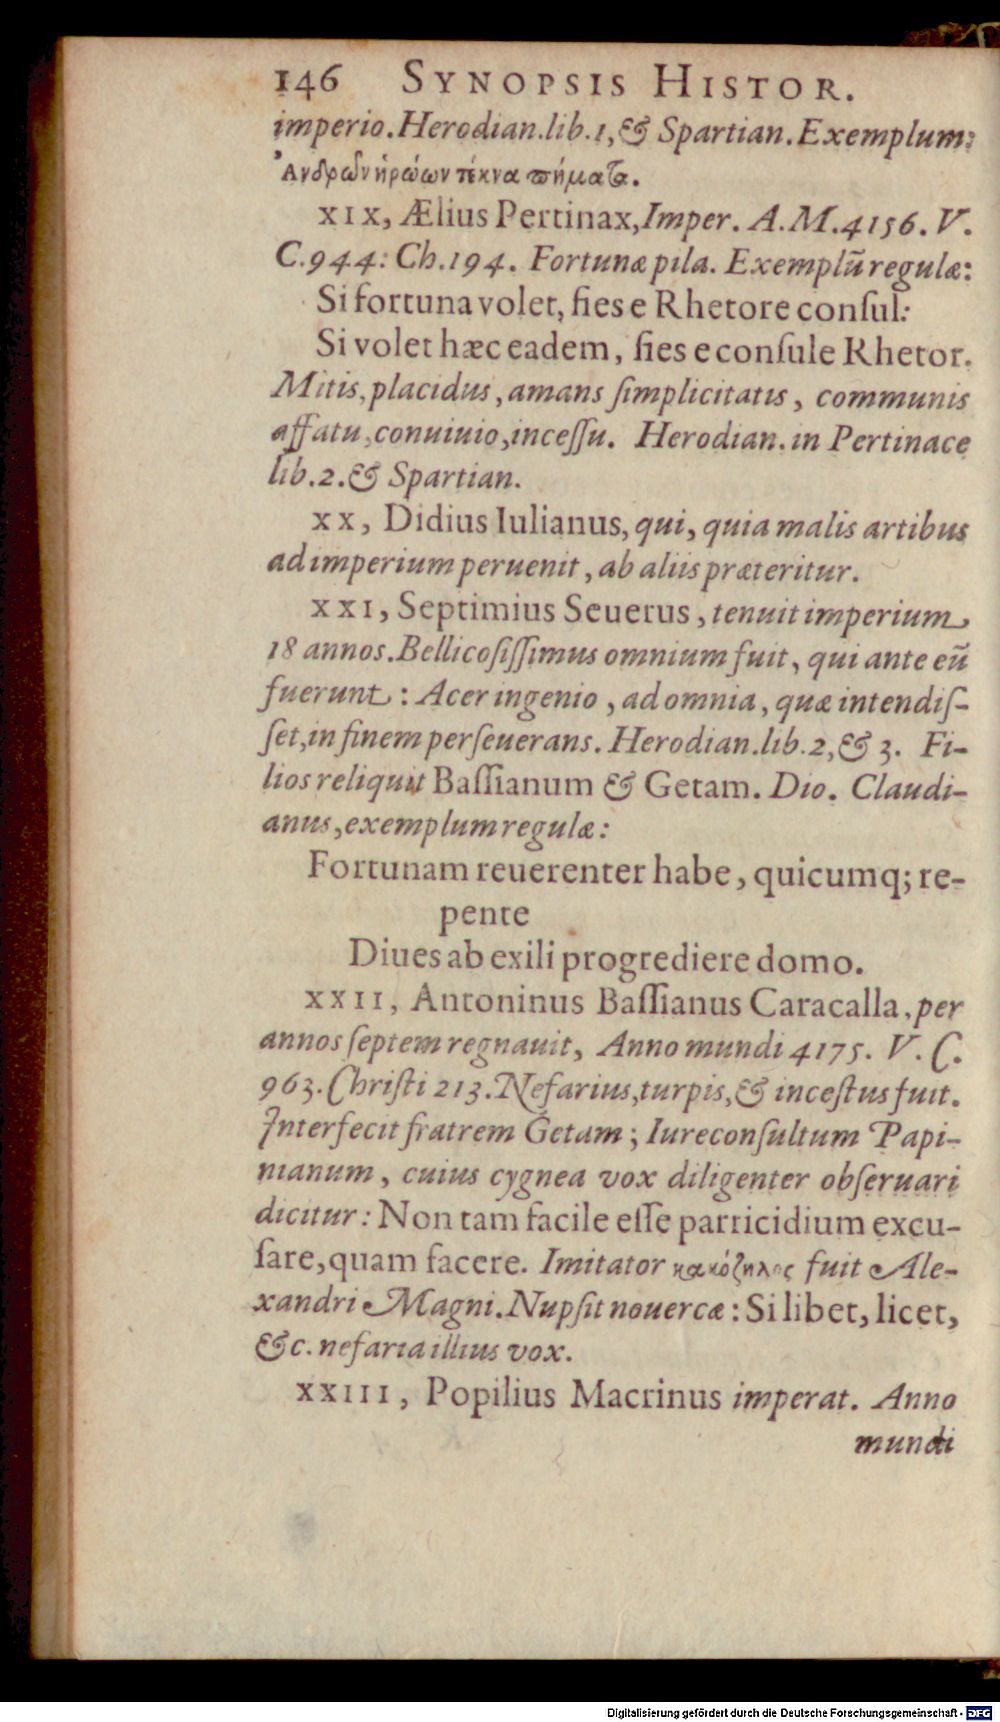 146 SYNOPSIS HISTOR.
imperio. Herodian. lib. 1, & Spartian. Exemplum:
Ἀνδρῶν ἡρώων τέκνα πήματα.
XIX, Ælius Pertinax, Imper. A. M. 4156. V.
C. 944: Ch. 194. Fortunæ pila. Exemplū regulæ:
Si fortuna volet, fies e Rhetore conſul:
Si volet hæc eadem, fies e conſule Rhetor.
Mitis, placidus, amans ſimplicitatis, communis
affatu, conuiuio, inceſſu. Herodian. in Pertinace
lib. 2. & Spartian.
XX, Didius Iulianus, qui, quia malis artibus
ad imperium peruenit, ab aliis præteritur.
XXI, Septimius Seuerus, tenuit imperium
18 annos. Bellicoſiſſimus omnium fuit, qui ante eū
fuerunt: Acer ingenio, ad omnia, quæ intendiſ-
ſet, in finem perſeuerans. Herodian. lib. 2, & 3. Fi-
lios reliquit Baſſianum & Getam. Dio. Claudi-
anus, exemplum regulæ:
Fortunam reuerenter habe, quicumq; re-
pente
Diues ab exili progrediere domo.
XXII, Antoninus Baſſianus Caracalla, per
annos ſeptem regnauit, Anno mundi 4175. V. C.
963. Chriſti 213. Nefarius, turpis, & inceſtus fuit.
Interfecit fratrem Getam; Iureconſultum Papi-
nianum, cuius cygnea vox diligenter obſeruari
dicitur: Non tam facile eſſe parricidium excu-
ſare, quam facere. Imitator κακόζηλος fuit Ale-
xandri Magni. Nupſit nouercæ: Si libet, licet,
&c. nefaria illius vox.
XXIII, Popilius Macrinus imperat. Anno
mundi
Digitalisierung gefördert durch die Deutsche Forschungsgemeinschaft - DFG